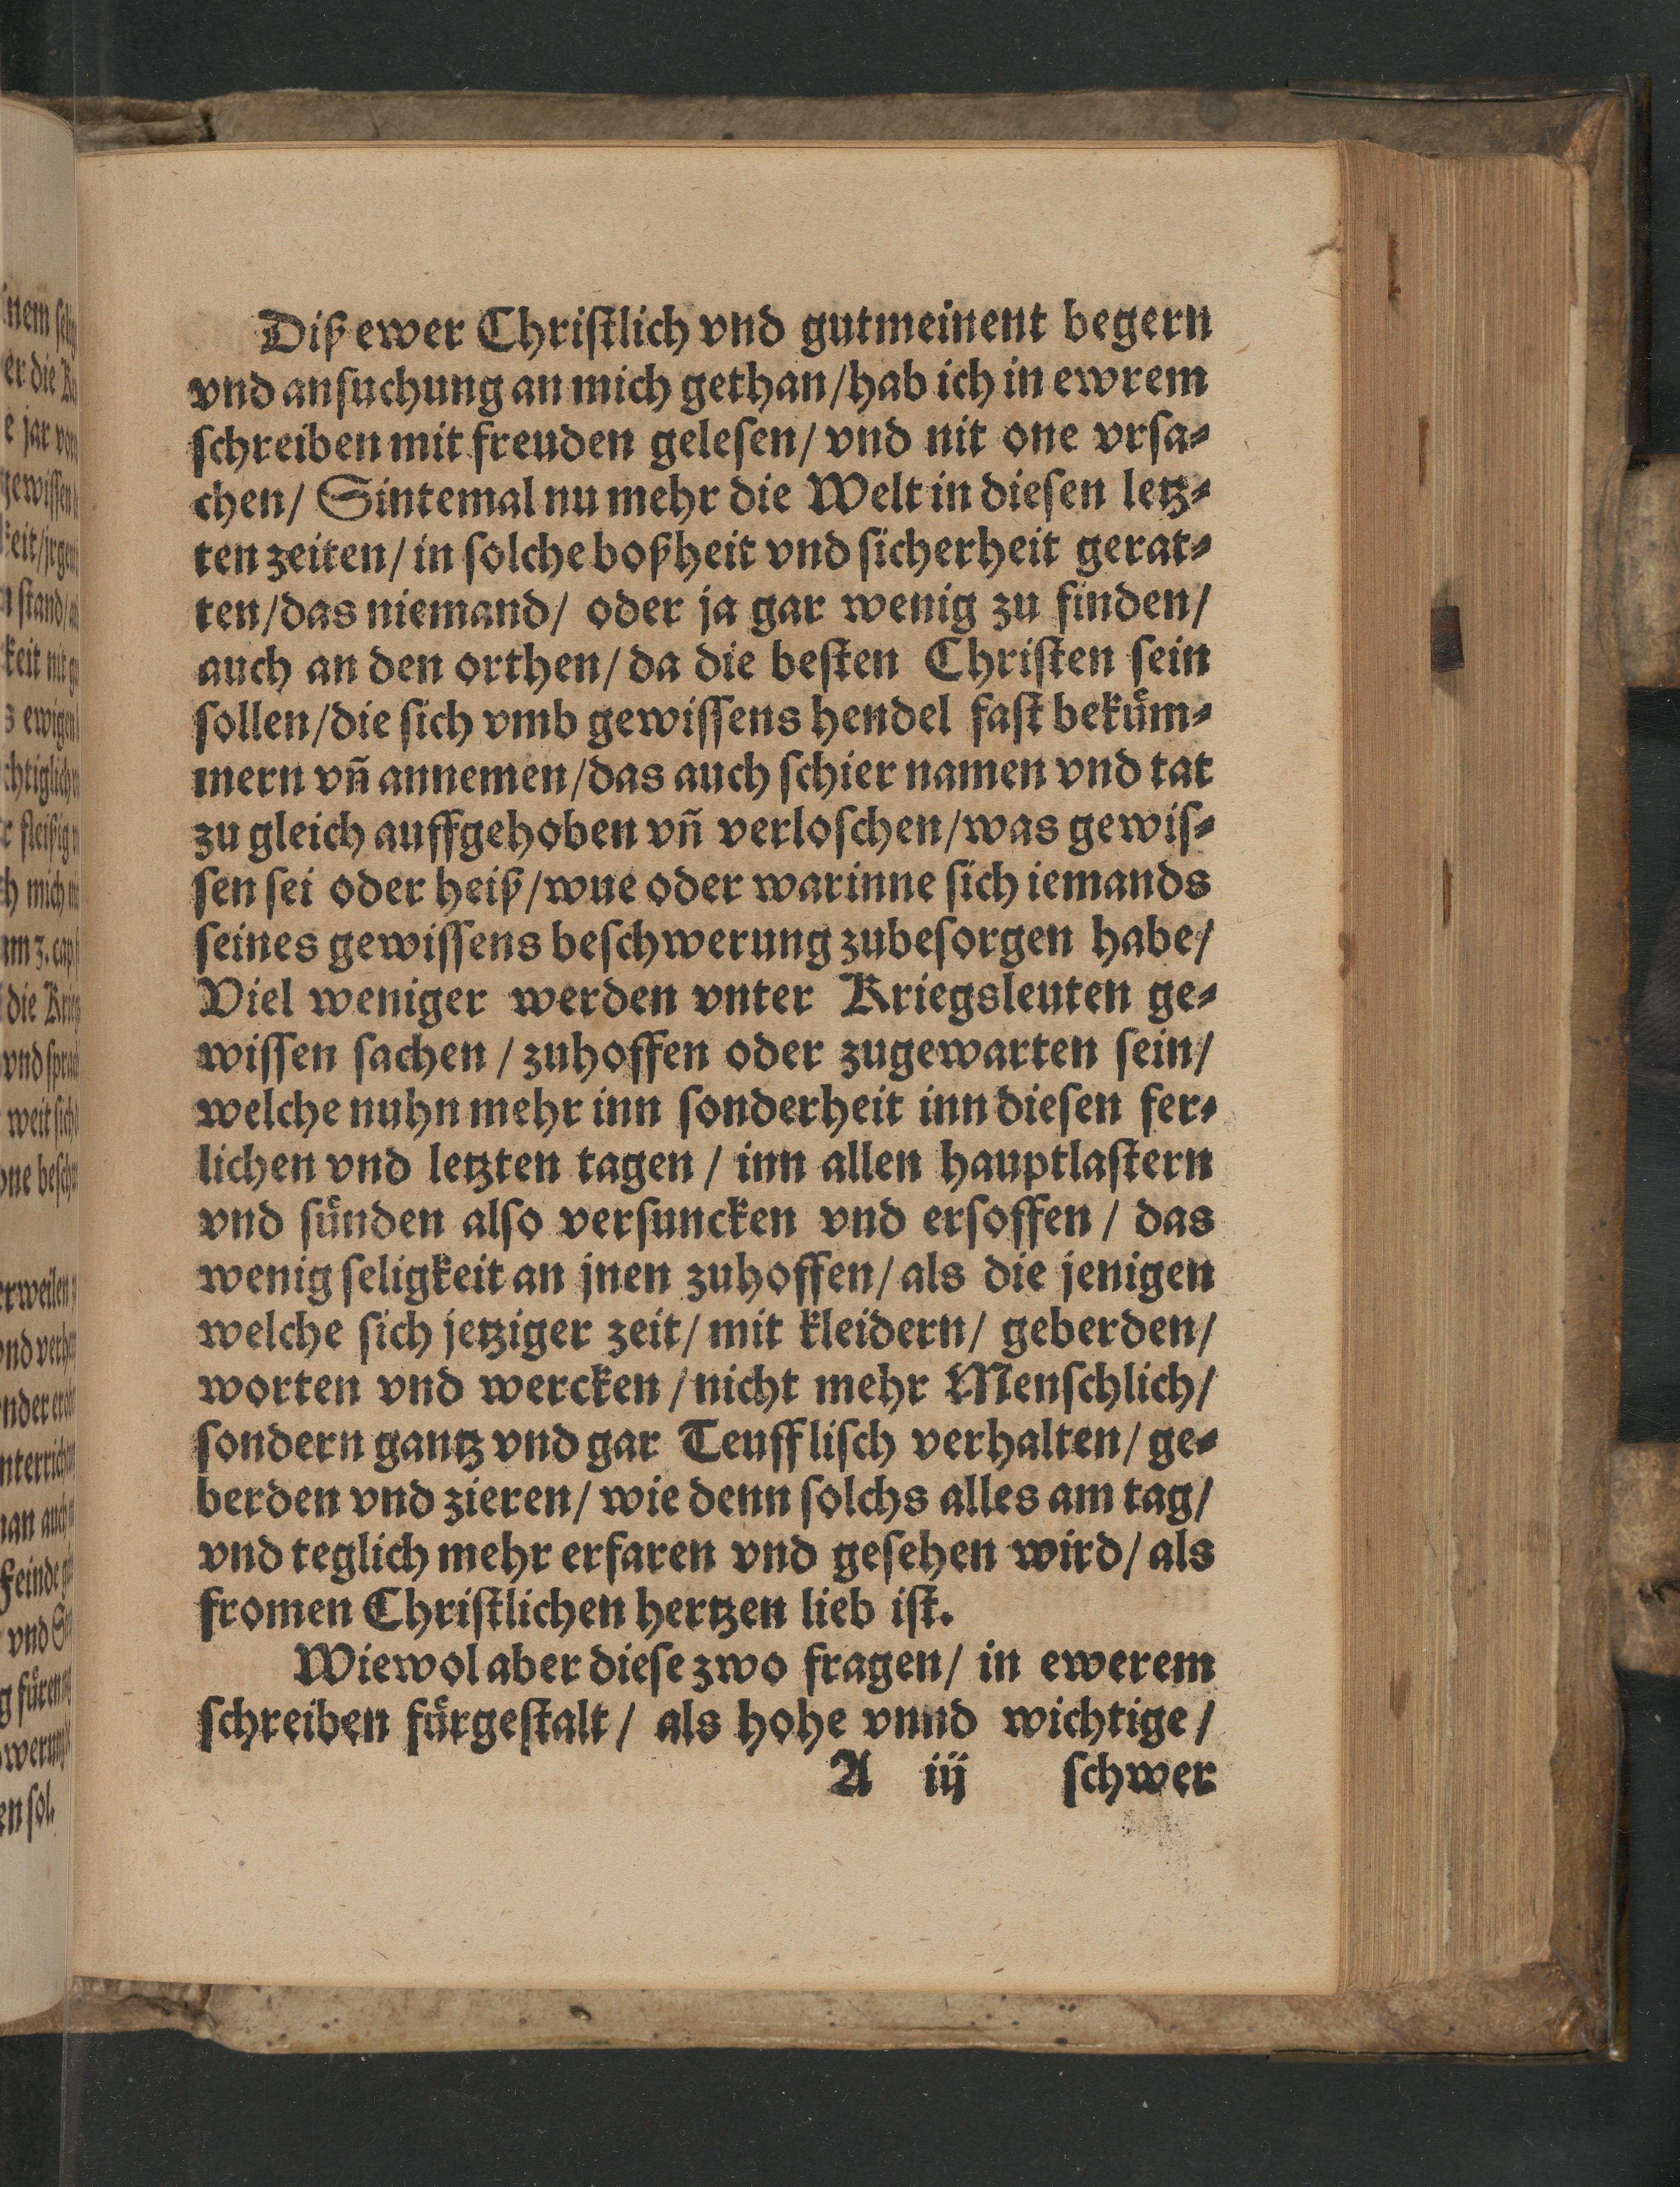 Diß ewer Chriſtlich vnd gutmeinent begern
vnd anſuchung an mich gethan/hab ich in ewrem
ſchreiben mit freuden geleſen/ vnd nit one vrſa⸗
chen/ Sintemal nu mehr die Welt in dieſen letz⸗
ten zeiten/ in ſolche boßheit vnd ſicherheit gerat⸗
ten/das niemand/ oder ja gar wenig zu finden/
auch an den orthen/ da die beſten Chriſten ſein
ſollen/die ſich vmb gewiſſens hendel faſt bekuͤm⸗
mern vñ annemen/das auch ſchier namen vnd tat
zu gleich auffgehoben vñ verloſchen/was gewiſ⸗
ſen ſei oder heiß/wue oder warinne ſich iemands
ſeines gewiſſens beſchwerung zubeſorgen habe/
Viel weniger werden vnter Kriegsleuten ge⸗
wiſſen ſachen / zuhoffen oder zugewarten ſein/
welche nuhn mehr inn ſonderheit inn dieſen fer⸗
lichen vnd letzten tagen / inn allen hauptlaſtern
vnd ſuͤnden alſo verſuncken vnd erſoffen / das
wenig ſeligkeit an jnen zuhoffen/ als die jenigen
welche ſich jetziger zeit/ mit kleidern/ geberden/
worten vnd wercken / nicht mehr Menſchlich/
ſondern gantz vnd gar Teuffliſch verhalten/ ge⸗
berden vnd zieren/ wie denn ſolchs alles am tag/
vnd teglich mehr erfaren vnd geſehen wird/ als
fromen Chriſtlichen hertzen lieb iſt.
Wiewol aber dieſe zwo fragen/ in ewerem
ſchreiben fuͤrgeſtalt / als hohe vnnd wichtige /
A iij ſchwer